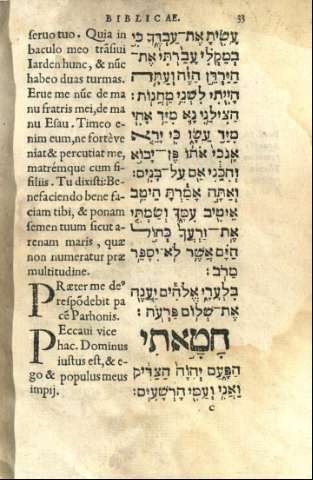 BIBLICAE. 33
seruo tuo. Quia in
baculo meo trāsiui
Iarden hunc, & nūc
habeo duas turmas.
Erue me nūc de ma
nu fratris mei, de ma
nu Esau. Timeo e-
nim eum, ne fortè ve
niat & percutiat me,
matrémque cum fi-
filiis. Tu dixisti: Be-
nefaciendo bene fa-
ciam tibi, & ponam
semen tuum sicut a-
renam maris, quæ
non numeratur præ
multitudine.
PRæter me de⁹
respōdebit pa
cē Parhonis.
PEccaui vice
hac. Dominus
iustus est, & e-
go & populus meus
impij.
עָשִׂיתָ אֶת־עַבְדֶּךָ כִּי
בְמַקְלִי עָבַרְתִּי אֶת־
הַיַּרְדֵּן הַזֶּה וְעַתָּה
הָיִיתִי לִשְׁנֵי מַחֲנוֹת׃
הַצִּילֵנִי נָא מִיַּד אָחִי
מִיַּד עֵשָׂו כִּי יָרֵא
אָנֹכִי אֹתוֹ פֶּן־יָבוֹא
וְהִכַּנִי אֵם עַל־בָּנִים׃
וְאַתָּה אָמַרְתָּ הֵיטֵב
אֵיטִיב עִמָּךְ וְשַׂמְתִּי
אֶת־זַרְעֲךָ כְּחוֹל
הַיָּם אֲשֶׁר לֹא־יִסָּפֵר
מֵרֹב׃
בִּלְעָדָי אֱלֹהִים יַעֲנֶה
אֶת־שְׁלוֹם פַּרְעֹה׃
חָטָאתִי
הַפָּעַם יְהוָה הַצַּדִּיק
וַאֲנִי וְעַמִּי הָרְשָׁעִים׃
c